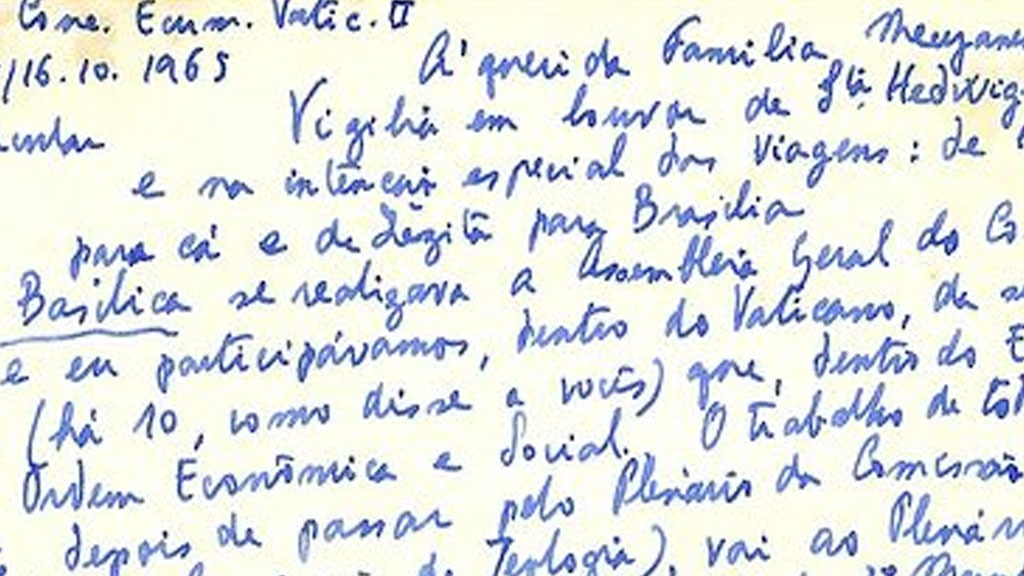 Conc. Ecum. Vatic. II
/16.10.1965 A' querida Familia
Vigília em louvor de Stª Hedivig
e na intenção especial das viagens: de
para cá e de Zêzita para Brasilia
Basilica se realizava a Assembleia Geral do Co
e eu participávamos, dentro do Vaticano, da
(há 10, como disse a vocês) que, dentro do E
Ordem Econômica e Social. O trabalho de tôd
depois de passar pelo Plenário da Comissão
de Teologia), vai ao Plenár